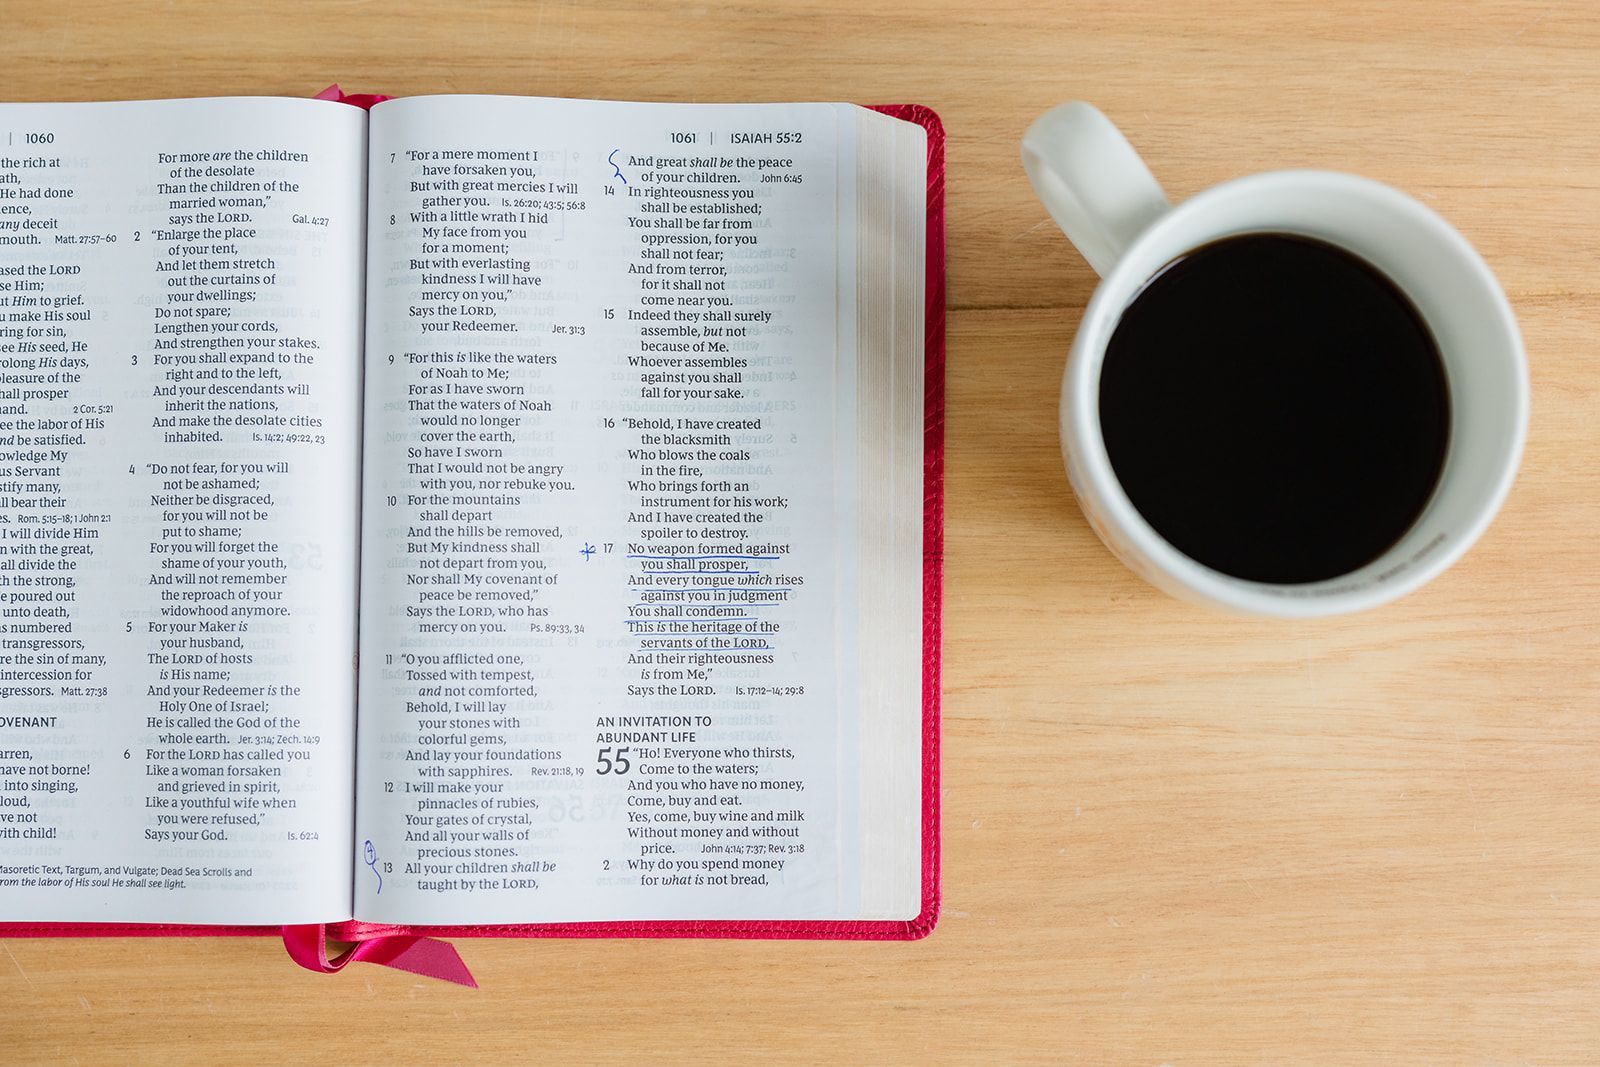 | 1060
the rich at
ath,
He had done
ence,
any deceit
mouth. Matt. 27:57–60
ased the LORD
se Him;
ut Him to grief.
u make His soul
ring for sin,
see His seed, He
rolong His days,
leasure of the
hall prosper
hand. 2 Cor. 5:21
ee the labor of His
nd be satisfied.
owledge My
us Servant
stify many,
ll bear their
es. Rom. 5:15–18; 1 John 2:1
I will divide Him
n with the great,
all divide the
th the strong,
e poured out
unto death,
as numbered
transgressors,
re the sin of many,
intercession for
sgressors. Matt. 27:38
OVENANT
arren,
have not borne!
into singing,
loud,
ve not
with child!
For more are the children
of the desolate
Than the children of the
married woman,”
says the LORD. Gal. 4:27
2 “Enlarge the place
of your tent,
And let them stretch
out the curtains of
your dwellings;
Do not spare;
Lengthen your cords,
And strengthen your stakes.
3 For you shall expand to the
right and to the left,
And your descendants will
inherit the nations,
And make the desolate cities
inhabited. Is. 14:2; 49:22, 23
4 “Do not fear, for you will
not be ashamed;
Neither be disgraced,
for you will not be
put to shame;
For you will forget the
shame of your youth,
And will not remember
the reproach of your
widowhood anymore.
5 For your Maker is
your husband,
The LORD of hosts
is His name;
And your Redeemer is the
Holy One of Israel;
He is called the God of the
whole earth. Jer. 3:14; Zech. 14:9
6 For the LORD has called you
Like a woman forsaken
and grieved in spirit,
Like a youthful wife when
you were refused,”
Says your God. Is. 62:4
Masoretic Text, Targum, and Vulgate; Dead Sea Scrolls and
rom the labor of His soul He shall see light.
1061 | ISAIAH 55:2
7 “For a mere moment I
have forsaken you,
But with great mercies I will
gather you. Is. 26:20; 43:5; 56:8
8 With a little wrath I hid
My face from you
for a moment;
But with everlasting
kindness I will have
mercy on you,”
Says the LORD,
your Redeemer. Jer. 31:3
9 “For this is like the waters
of Noah to Me;
For as I have sworn
That the waters of Noah
would no longer
cover the earth,
So have I sworn
That I would not be angry
with you, nor rebuke you.
10 For the mountains
shall depart
And the hills be removed,
But My kindness shall
not depart from you,
Nor shall My covenant of
peace be removed,”
Says the LORD, who has
mercy on you. Ps. 89:33, 34
11 “O you afflicted one,
Tossed with tempest,
and not comforted,
Behold, I will lay
your stones with
colorful gems,
And lay your foundations
with sapphires. Rev. 21:18, 19
12 I will make your
pinnacles of rubies,
Your gates of crystal,
And all your walls of
precious stones.
13 All your children shall be
taught by the LORD,
And great shall be the peace
of your children. John 6:45
14 In righteousness you
shall be established;
You shall be far from
oppression, for you
shall not fear;
And from terror,
for it shall not
come near you.
15 Indeed they shall surely
assemble, but not
because of Me.
Whoever assembles
against you shall
fall for your sake.
16 “Behold, I have created
the blacksmith
Who blows the coals
in the fire,
Who brings forth an
instrument for his work;
And I have created the
spoiler to destroy.
17 No weapon formed against
you shall prosper,
And every tongue which rises
against you in judgment
You shall condemn.
This is the heritage of the
servants of the LORD,
And their righteousness
is from Me,”
Says the LORD. Is. 17:12–14; 29:8
AN INVITATION TO
ABUNDANT LIFE
55 “Ho! Everyone who thirsts,
Come to the waters;
And you who have no money,
Come, buy and eat.
Yes, come, buy wine and milk
Without money and without
price. John 4:14; 7:37; Rev. 3:18
2 Why do you spend money
for what is not bread,